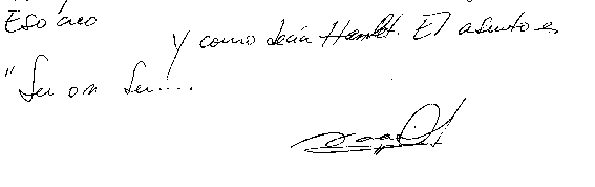 Eso creo
Y como decía Hamlet. El asunto es
"Ser o n Ser....